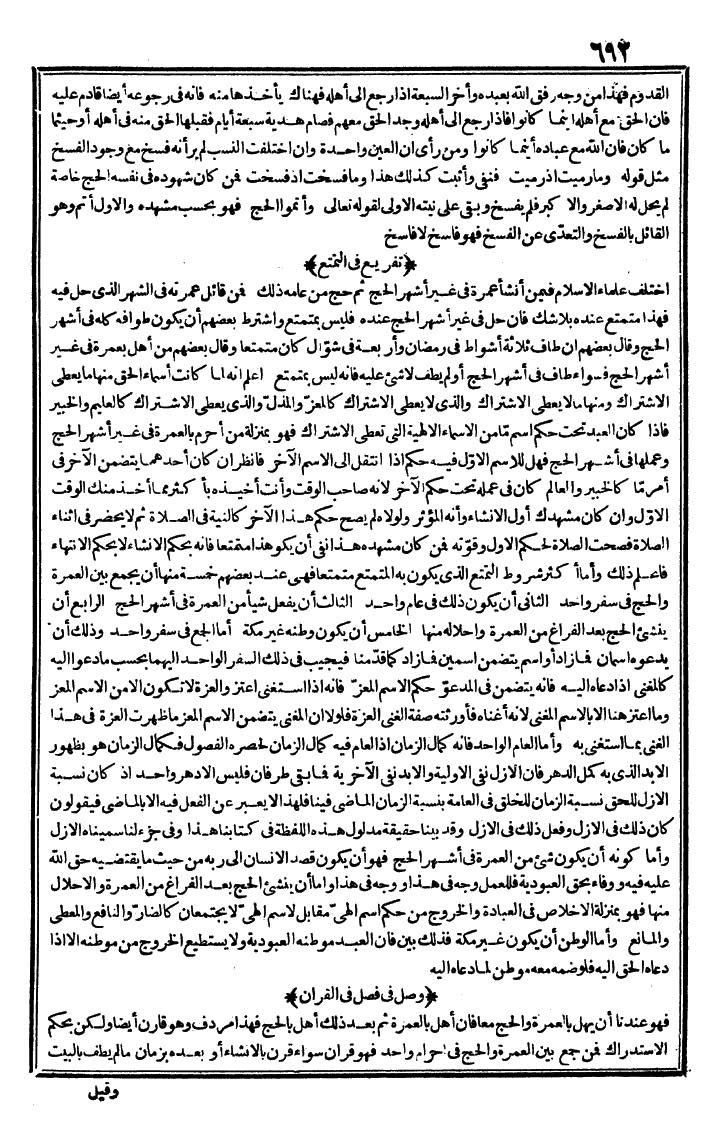 ٦٩٢
القدوم فهذا من وجه رفق الله بعبده وأخر السبعة اذا رجع الى أهله فهناك يأخذها منه فانه فى رجوعه أيضا قادم عليه
فان الحق مع أهله اينما كانوا فاذا رجع الى أهله وجد الحق معهم فصام هدية سبعة أيام فقبلها الحق منه فى أهله أوحيثما
ما كان فان الله مع عباده أينما كانوا ومن رأى ان العين واحدة وان اختلفت النسب لم ير أنه فسخ مع وجود الفسخ
مثل قوله وما رميت اذ رميت فنفى وأثبت كذلك هذا وما فسخت اذ فسخت فمن كان شهوده فى نفسه الحج خاصة
لم يحل له الاصغر والاكبر فلم يفسخ وبقى على نيته الاولى لقوله تعالى وأتموا الحج فهو بحسب مشهده والاول أتم وهو
القائل بالفسخ والتعدّى عن الفسخ فهو فاسخ لا فاسخ
﴿تفريع فى التمتع﴾
اختلف علماء الاسلام فيمن أنشأ عمرة فى غير أشهر الحج ثم حج من عامه ذلك فمن قائل عمرته فى الشهر الذى حل فيه
فهذا متمتع عنده بلاشك فان حل فى غير أشهر الحج عنده فليس بمتمتع واشترط بعضهم أن يكون طوافه كله فى أشهر
الحج وقال بعضهم ان طاف ثلاثة أشواط فى رمضان وأربعة فى شوّال كان متمتعا وقال بعضهم من أهل بعمرة فى غير
أشهر الحج فسواء طاف فى أشهر الحج أولم يطف لاشئ عليه فانه ليس بمتمتع اعلم انه لما كانت أسماء الحق منها ما يعطى
الاشتراك ومنها ما لا يعطى الاشتراك والذى لا يعطى الاشتراك كالمعزّ والمذلّ والذى يعطى الاشتراك كالعليم والخبير
فاذا كان العبد تحت حكم اسم مّا من الاسماء الالهية التى تعطى الاشتراك فهو بمنزلة من أحرم بالعمرة فى غير أشهر الحج
وعملها فى أشهر الحج فهل للاسم الاوّل فيه حكم اذا انتقل الى الاسم الآخر فانظر ان كان أحدهما يتضمن الآخر فى
أمر مّا كالخبير والعالم كان فى عمله تحت حكم الآخر لانه صاحب الوقت وأنت أخيذه بأكثر مما أخذ منك الوقت
الاوّل وان كان مشهدك أول الانشاء وأنه المؤثر ولولاه لم يصح حكم هذا الآخر كالنية فى الصلاة ثم لا يحضر فى اثناء
الصلاة فصحت الصلاة لحكم الاول وقوّته فمن كان مشهده هذا نفى أن يكو هذا متمتعا فانه بحكم الانشاء لا بحكم الانتهاء
فاعلم ذلك وأما أكثر شروط التمتع الذى يكون به المتمتع متمتعا فهى عند بعضهم خمسة منها أن يجمع بين العمرة
والحج فى سفر واحد الثانى أن يكون ذلك فى عام واحد الثالث أن يفعل شيأ من العمرة فى أشهر الحج الرابع أن
ينشئ الحج بعد الفراغ من العمرة واحلاله منها الخامس أن يكون وطنه غير مكة أما الجمع فى سفر واحد وذلك أن
يدعوه اسمان فمازاد أواسم يتضمن اسمين فمازاد كما قدّمنا فيجيب فى ذلك السفر الواحد اليهما بحسب ما دعوا اليه
كالمغنى اذا دعاه اليه فانه يتضمن فى المدعوّ حكم الاسم المعزّ فانه اذا استغنى اعتز والعزة لا تكون الا من الاسم المعز
وما اعتز هنا الا بالاسم المغنى لانه أغناه فأورثته صفة الغنى العزة فلولا ان المغنى يتضمن الاسم المعز ما ظهرت العزة فى هذا
الغنى بما استغنى به وأما العام الواحد فانه كمال الزمان اذ العام فيه كمال الزمان لحصره الفصول فكمال الزمان هو بظهور
الابد الذى به كمل الدهر فان الازل نفى الاولية والابد نفى الآخرية فما بقى طرفان فليس الا دهر واحد اذ كان نسبة
الازل للحق نسبة الزمان للخلق فى العامة بنسبة الزمان الماضى فينا فلهذا لا يعبر عن الفعل فيه الا بالماضى فيقولون
كان ذلك فى الازل وفعل ذلك فى الازل وقد بينا حقيقة مدلول هذه اللفظة فى كتابنا هذا وفى جزء لنا سميناه الازل
وأما كونه أن يكون شئ من العمرة فى أشهر الحج فهو أن يكون قصد الانسان الى ربه من حيث ما يقتضيه حق الله
عليه فيه ووفاء بحق العبودية فللعمل وجه فى هذا ووجه فى هذا واما أن ينشئ الحج بعد الفراغ من العمرة والاحلال
منها فهو بمنزلة الاخلاص فى العبادة والخروج من حكم اسم الهىّ مقابل لاسم الهىّ لا يجتمعان كالضارّ والنافع والمعطى
والمانع وأما الوطن أن يكون غير مكة فذلك بين فان العبد موطنه العبودية ولا يستطيع الخروج من موطنه الا اذا
دعاه الحق اليه فلو ضمه معه موطن لما دعاه اليه
﴿وصل فى فصل فى القران﴾
فهو عندنا أن يهل بالعمرة والحج معا فان أهل بالعمرة ثم بعد ذلك أهل بالحج فهذا مردف وهو قارن أيضا ولكن بحكم
الاستدراك فمن جمع بين العمرة والحج فى احرام واحد فهو قران سواء قرن بالانشاء أو بعده بزمان ما لم يطف بالبيت
وقيل